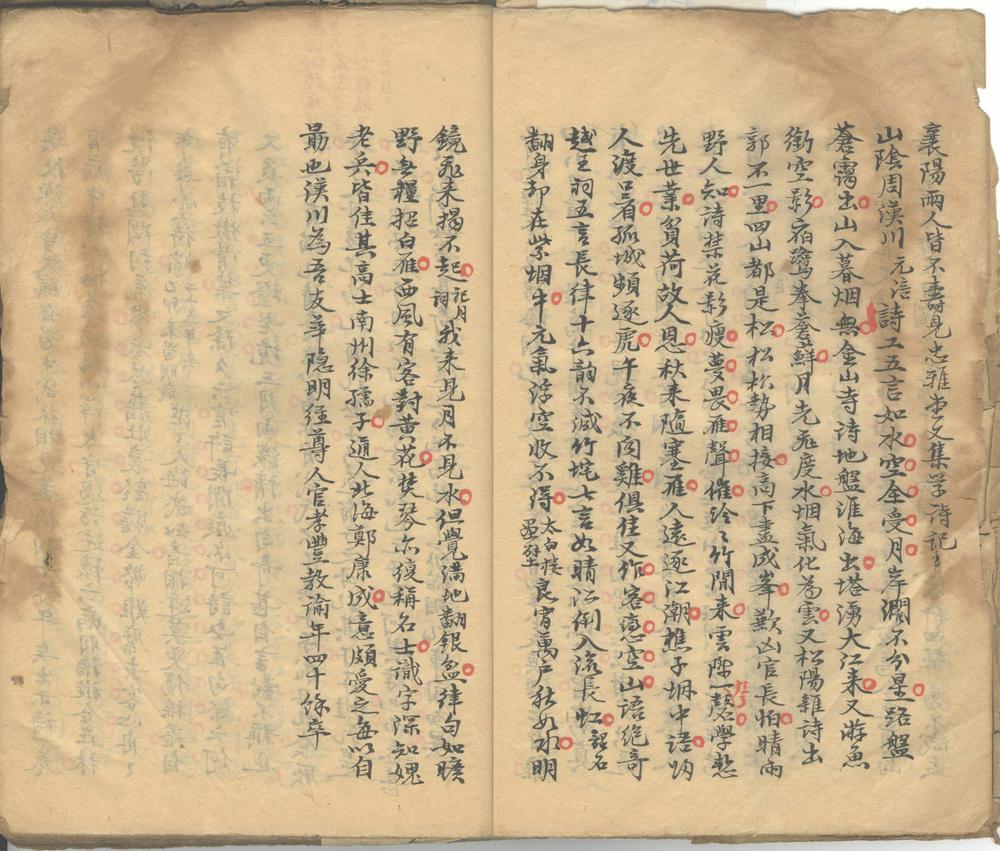 襄陽兩人皆不壽見忠雅堂文集学詩記
山陰周漢川元浩詩工五言如水空全受月岸濶不分星路盤
蒼靄出山入暮烟無金山寺詩地盤淮海出塔湧大江来又游魚
衝空影宿鷺拳蒼蘚月光及度水烟氣化為雲又松陽雜詩出
郭不一里四山都是松松松勢相接高下畫成峯歎凶官長怕晴雨
野人知詩禁花影瘦夢畏雁聲催泠々竹間来雲際一磬學愁
先世業負荷故人恩秋来隨塞雁人遠逐江潮樵子烟中語
人渡呂看孤城頻逐虎午夜不闻雞俱佳又客空山語絶奇
越王祠五言長律十六韵不減竹垞七言如晴江倒入流長虹
翻身却在紫烟牛元氣浮空收不得太白樓題壁良宵萬户秋如水明
鏡飛来揭不起祀月詞我来見月不見水但覺滿地翻銀盆律句如曠
野無糧招白雁西風有客對黄花焚琴亦復稱名士識字深知媿
老兵皆佳其高士南州徐孺子通人北海鄭康成意頗愛之每以自
勗也漢川為吾友羊隐明經尊人官孝豐教諭年四十餘卒